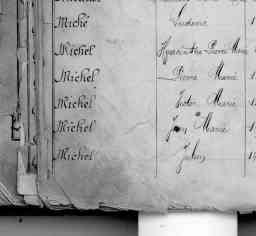 Miché
Michel Hyacinthe Pierre Marie
Michel Pierre Marie
Michel Victor Marie
Michel Jean Marie
Michel Julien